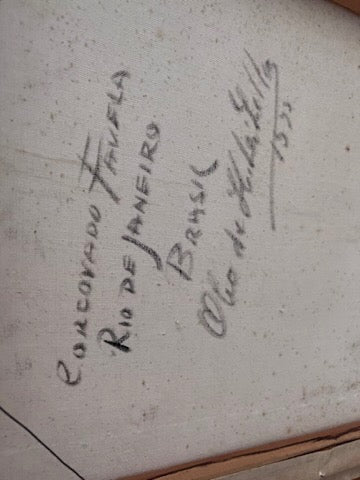 CORCOVADO FAVELA
RIO DE JANEIRO
BRASIL
Oleo de